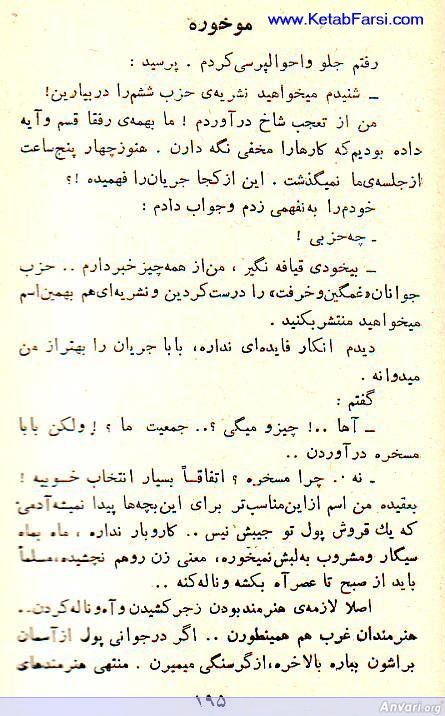 www.KetabFarsi.com
موخوره
رفتم جلو واحوالپرسی‌کردم . پرسید :
ــ شنیدم میخواهید نشریه‌ی حزب ششم‌را دربیارین!
من از تعجب شاخ درآوردم ! ما بهمه‌ی رفقا قسم وآیه
داده بودیم‌که کارهارا مخفی نگه دارن . هنوزچهار پنج‌ساعت
ازجلسه‌ی‌ما نمیگذشت . این ازکجا جریان‌را فهمیده !؟
خودم‌را به‌نفهمی زدم وجواب دادم :
ـ چه‌حزبی !
ــ بیخودی قیافه نگیر ، من‌از همه‌چیزخبردارم .. حزب
جوانان «غمگین‌وخرفت» را درست‌کردین ونشریه‌ای‌هم بهمین‌اسم
میخواهید منتشربکنید .
دیدم انکار فایده‌ای نداره، بابا جریان را بهتراز من
میدوانه .
گفتم :
ــ آها ..! چیزو میگی ؟.. جمعیت ما ؟ ! ولکن بابا
مسخره درآوردن ..
ـ نه .. چرا مسخره ؟ اتفاقاً بسیار انتخاب خـوبیه !
بعقیده من اسم ازاین‌مناسب‌تر برای این‌بچه‌ها پیدا نمیشه‌آدمی
که یك قروش پول تو جیبش نیس .. کاروبار نداره ، ماه بماه
سیگار ومشروب به‌لبش‌نمیخوره، معنی زن روهم نچشیده،مسلماً
باید از صبح تا عصرآه بکشه وناله‌کنه ..
اصلا لازمه‌ی هنرمندبودن زجرکشیدن وآه‌وناله‌کردن..
هنرمندان غرب هم همینطورن .. اگر درجوانی پول ازآسمان
براشون بباره بالاخره،ازگرسنگی میمیرن . منتهی هنرمندهای
۱۹۵
Anvari.org